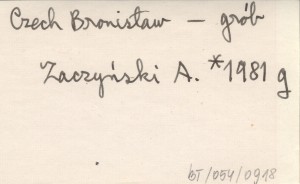 Czech Bronisław – grób
Zaczyński A. *1981 g
bT/054/0918